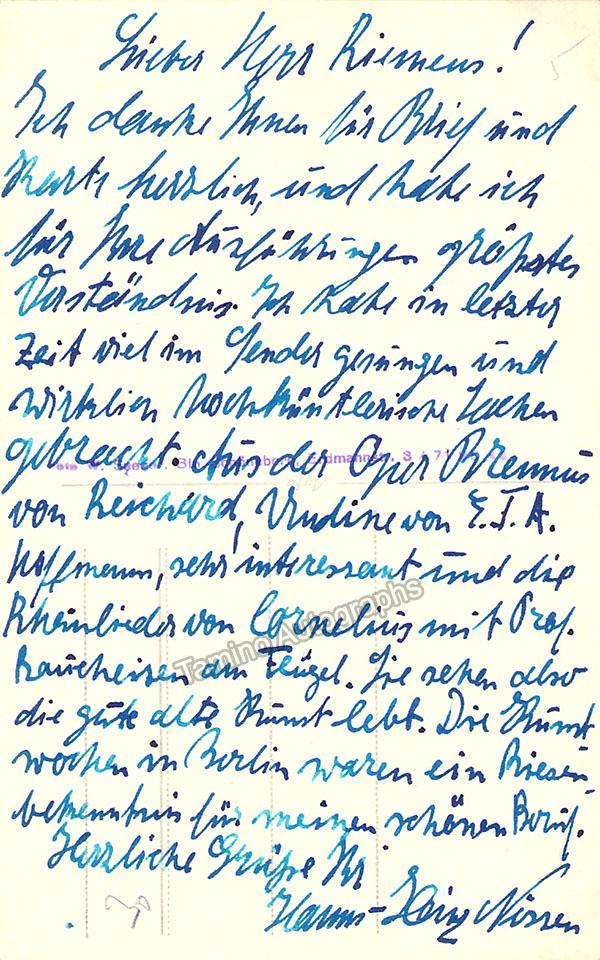 Lieber Herr Riemens!
Ich danke Ihnen für Brief und
Karte herzlich, und habe ich
für Ihre Ausführungen größtes
Verständnis. Ich habe in letzter
Zeit viel im Sender gesungen und
wirklich hochkünstlerische Sachen
gebracht. Aus der Oper Brennus
von Reichard, Undine von E.T.A.
Hoffmann, sehr interessant und die
Rheinlieder von Cornelius mit Prof.
Raucheisen am Flügel. Sie sehen also
die gute alte Kunst lebt. Die Kunst
wochen in Berlin waren ein Riesen
bekenntnis für meinen schönen Beruf.
Herzliche Grüße Ihr
Hanns-Heinz Nissen
Tamino Autographs